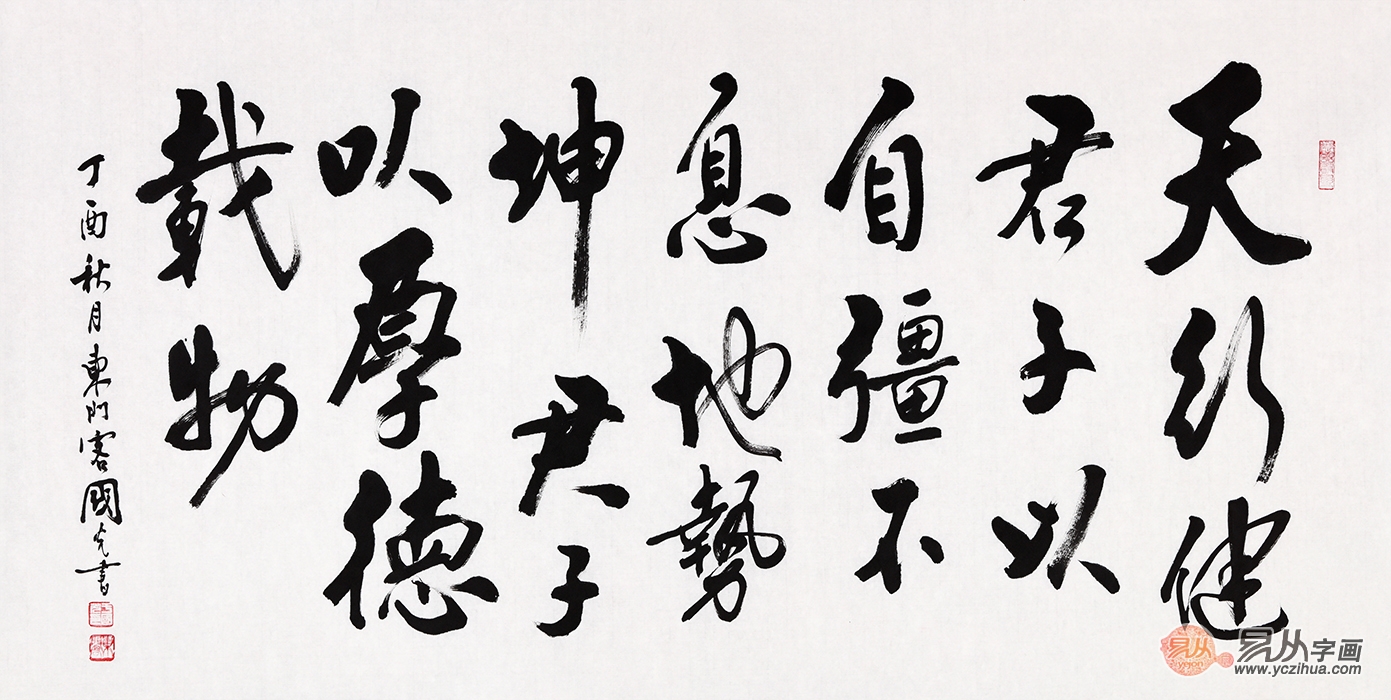 天行健
君子以
自彊不
息地勢
坤君子
以厚德
載物
丁酉秋月東門客國光書
易从字画
www.yczihua.com
易从
yiyion